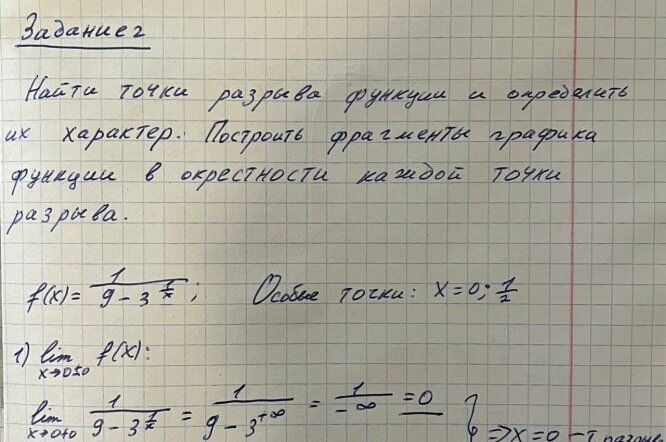 Задание 2
Найти точки разрыва функции и определить
их характер. Построить фрагменты графика
функции в окрестности каждой точки
разрыва.
f(x) = 1/(9 - 3^(1/x)); Особые точки: x = 0; 1/2
1) lim x→0±0 f(x):
lim x→0+0 1/(9 - 3^(1/x)) = 1/(9 - 3^(+∞)) = 1/(-∞) = 0 } ⇒ x = 0 - т разрыва